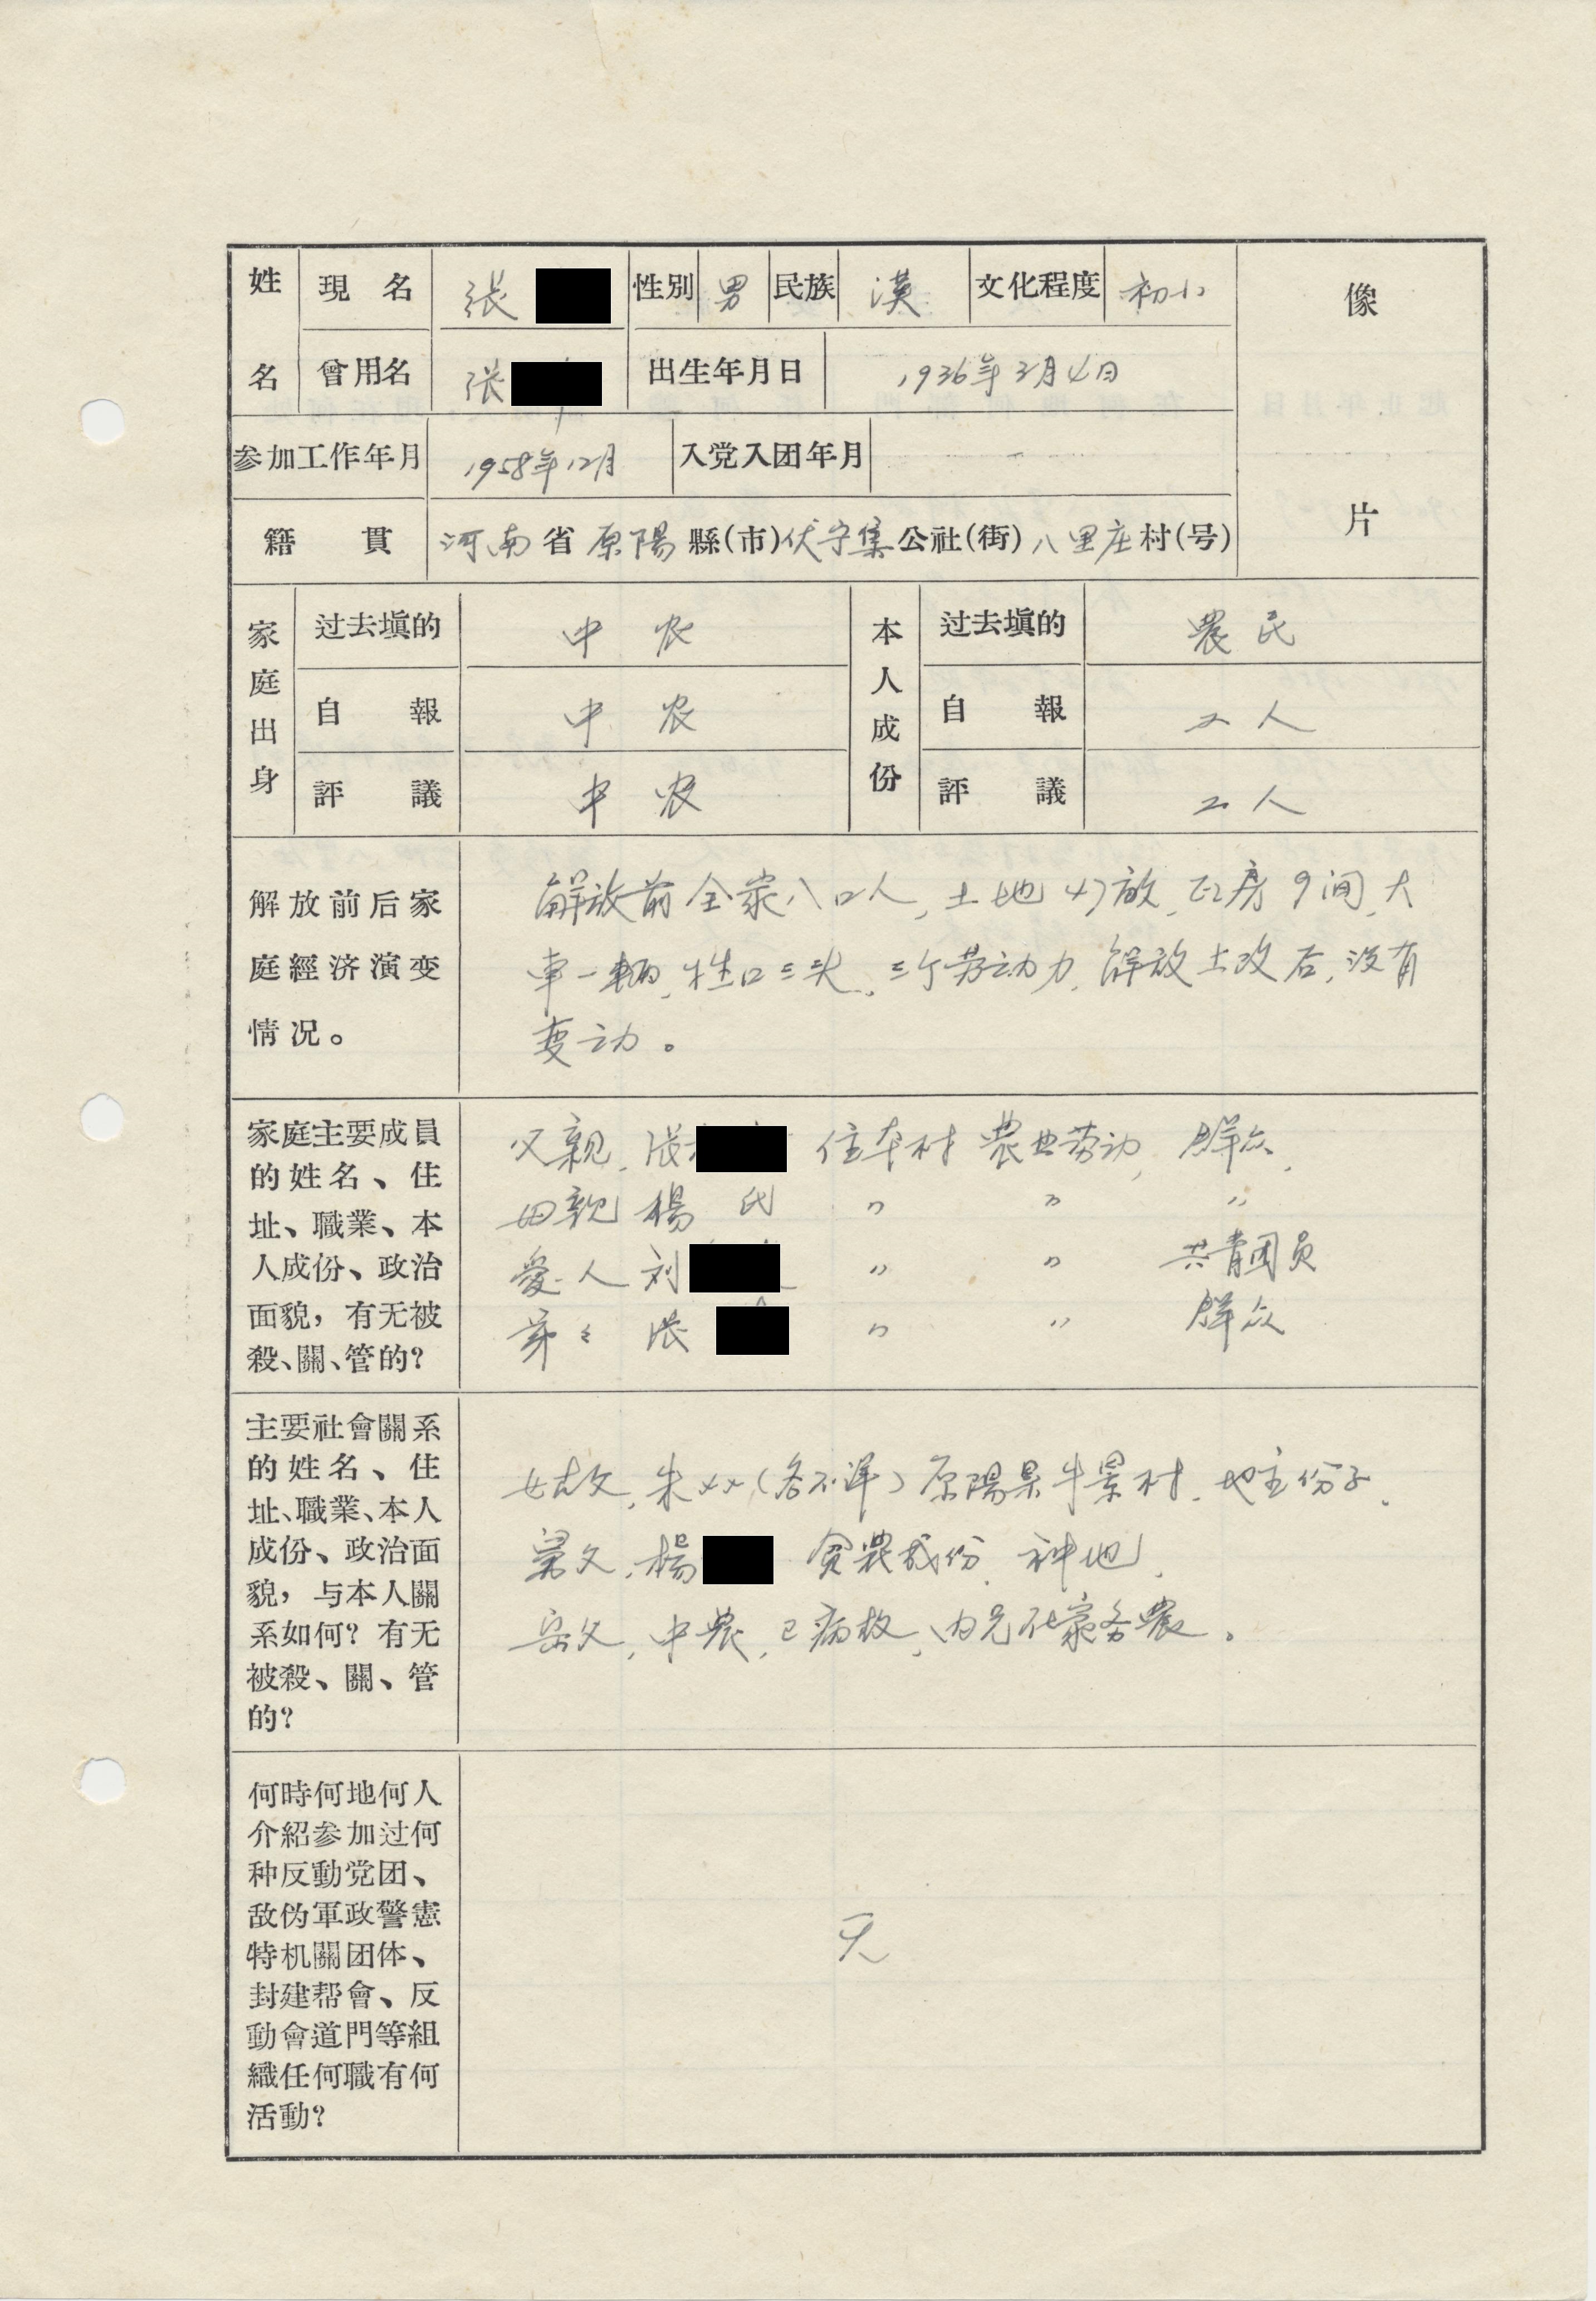 姓名 現名 張 性別 男 民族 漢 文化程度 初小 像片
曾用名 张 出生年月日 1936年3月4日
参加工作年月 1958年12月 入党入团年月
籍貫 河南省原陽縣(市)伏宁集公社(街)八里庄村(号)
家庭出身 过去塡的 中农 本人成份 过去塡的 農民
自報 中农 自報 工人
評議 中农 評議 工人
解放前后家
庭經济演变
情况。
解放前全家八口人,土地47畝,瓦房9间,大
車一輛,牲口三头,三个劳动力,解放土改后,没有
变动。
家庭主要成員
的姓名、住
址、職業、本
人成份、政治
面貌,有无被
殺、關、管的?
父親,张 住本村 農业劳动,群众,
母親 楊氏 〃 〃 〃
愛人 刘 〃 〃 共青团员
弟々 张 〃 〃 群众
主要社會關系
的姓名、住
址、職業、本人
成份、政治面
貌,与本人關
系如何?有无
被殺、關、管
的?
朱××(名不详)原陽县牛景村,地主份子,
舅父,楊 贫農成份,种地,
岳父,中農,已病故,内兄在家务農。
何時何地何人
介紹参加过何
种反動党团、
敌伪軍政警憲
特机關团体、
封建帮會、反
動會道門等組
織任何職有何
活動?
无